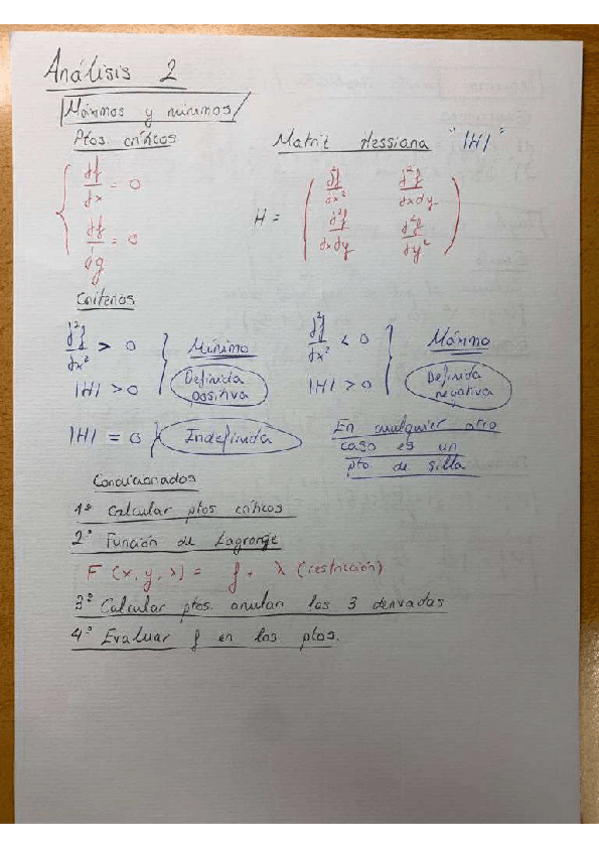 Análisis 2
Máximos y mínimos
Ptos. críticos
Matriz Hessiana "|H|"
df/dx = 0
df/dy = 0
H = ( d²f/dx² d²f/dxdy
d²f/dxdy d²f/dy² )
Criterios
d²f/dx² > 0
|H| > 0
Mínimo
Definida
positiva
d²f/dx² < 0
|H| > 0
Máximo
Definida
negativa
|H| = 0
Indefinida
En cualquier otro
caso es un
pto. de silla
Condicionados
1º Calcular ptos críticos
2º Función de Lagrange
F (x, y, λ) = f + λ (restricción)
3º Calcular ptos. anulan las 3 derivadas
4º Evaluar f en los ptos.